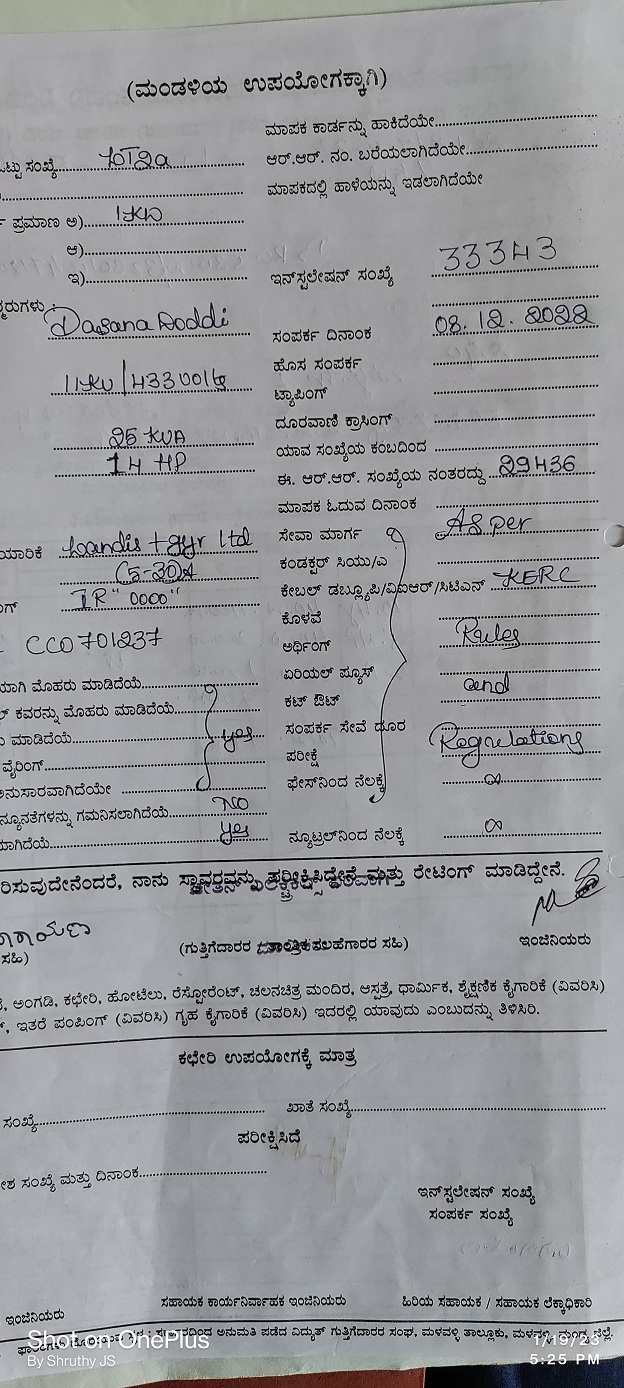 (ಮಂಡಳಿಯ ಉಪಯೋಗಕ್ಕಾಗಿ)
ಮಾಪಕ ಕಾರ್ಡನ್ನು ಹಾಕಿದೆಯೇ
ಒಟ್ಟು ಸಂಖ್ಯೆ
ಆರ್.ಆರ್. ನಂ. ಬರೆಯಲಾಗಿದೆಯೇ
ಮಾಪಕದಲ್ಲಿ ಹಾಳೆಯನ್ನು ಇಡಲಾಗಿದೆಯೇ
ಪ್ರಮಾಣ ಅ)
ಆ)
ಇ)
ಇನ್‌ಸ್ಟಲೇಷನ್ ಸಂಖ್ಯೆ 33343
Dasana Doddi
ಸಂಪರ್ಕ ದಿನಾಂಕ 08.12.2022
ಹೊಸ ಸಂಪರ್ಕ
11KV/433V
ಟ್ಯಾಪಿಂಗ್
ದೂರವಾಣಿ ಕ್ರಾಸಿಂಗ್
25 KVA
ಯಾವ ಸಂಖ್ಯೆಯ ಕಂಬದಿಂದ
14 HP
ಈ. ಆರ್.ಆರ್. ಸಂಖ್ಯೆಯ ನಂತರದ್ದು 29436
ಮಾಪಕ ಓದುವ ದಿನಾಂಕ
Landis + gyr ltd
ಸೇವಾ ಮಾರ್ಗ As per
(5-30)A
ಕಂಡಕ್ಟರ್ ಸಿಯು/ಎ
IR "0000"
ಕೇಬಲ್ ಡಬ್ಲ್ಯೂಪಿ/ವಿಐಆರ್/ಸಿಟಿಎಸ್ KERC
ಕೊಳವೆ
CC0701237
ಅರ್ಥಿಂಗ್ Rules
ಏರಿಯಲ್ ಪ್ಯೂಸ್
ಯಾಗಿ ಮೊಹರು ಮಾಡಿದೆಯೆ
ಕಟ್ ಔಟ್ and
ಕವರನ್ನು ಮೊಹರು ಮಾಡಿದೆಯೆ
ಸಂಪರ್ಕ ಸೇವೆ ದೂರ
ಮಾಡಿದೆಯೆ yes
ಪರೀಕ್ಷೆ Regulations
ವೈರಿಂಗ್
ಫೇಸ್‌ನಿಂದ ನೆಲಕ್ಕೆ ∞
ಅನುಸಾರವಾಗಿದೆಯೇ
ನ್ಯೂನತೆಗಳನ್ನು ಗಮನಿಸಲಾಗಿದೆಯೆ NO
ಯಾಗಿದೆಯೆ yes
ನ್ಯೂಟ್ರಲ್‌ನಿಂದ ನೆಲಕ್ಕೆ ∞
ರಿಸುವುದೇನೆಂದರೆ, ನಾನು ಸ್ಥಾವರವನ್ನು ಪರೀಕ್ಷಿಸಿದ್ದೇನೆ ಮತ್ತು ರೇಟಿಂಗ್ ಮಾಡಿದ್ದೇನೆ.
ಸಹಿ)
(ಗುತ್ತಿಗೆದಾರರ ಸಲಹೆಗಾರರ ಸಹಿ)
ಇಂಜಿನಿಯರು
ಅಂಗಡಿ, ಕಛೇರಿ, ಹೋಟೆಲು, ರೆಸ್ಟೋರೆಂಟ್, ಚಲನಚಿತ್ರ ಮಂದಿರ, ಆಸ್ಪತ್ರೆ, ಧಾರ್ಮಿಕ, ಶೈಕ್ಷಣಿಕ ಕೈಗಾರಿಕೆ (ವಿವರಿಸಿ)
ಇತರೆ ಪಂಪಿಂಗ್ (ವಿವರಿಸಿ) ಗೃಹ ಕೈಗಾರಿಕೆ (ವಿವರಿಸಿ) ಇದರಲ್ಲಿ ಯಾವುದು ಎಂಬುದನ್ನು ತಿಳಿಸಿರಿ.
ಕಛೇರಿ ಉಪಯೋಗಕ್ಕೆ ಮಾತ್ರ
ಸಂಖ್ಯೆ
ಖಾತೆ ಸಂಖ್ಯೆ
ಪರೀಕ್ಷಿಸಿದೆ
ಸಂಖ್ಯೆ ಮತ್ತು ದಿನಾಂಕ
ಇನ್‌ಸ್ಟಲೇಷನ್ ಸಂಖ್ಯೆ
ಸಂಪರ್ಕ ಸಂಖ್ಯೆ
ಇಂಜಿನಿಯರು
ಸಹಾಯಕ ಕಾರ್ಯನಿರ್ವಾಹಕ ಇಂಜಿನಿಯರು
ಹಿರಿಯ ಸಹಾಯಕ / ಸಹಾಯಕ ಲೆಕ್ಕಾಧಿಕಾರಿ
ಅನುಮತಿ ಪಡೆದ ವಿದ್ಯುತ್ ಗುತ್ತಿಗೆದಾರರ ಸಂಘ, ಮಳವಳ್ಳಿ ತಾಲ್ಲೂಕು, ಮಳವಳ್ಳಿ, ಮಂಡ್ಯ ಜಿಲ್ಲೆ.
Shot on OnePlus
By Shruthy JS
1/19/23
5:25 PM